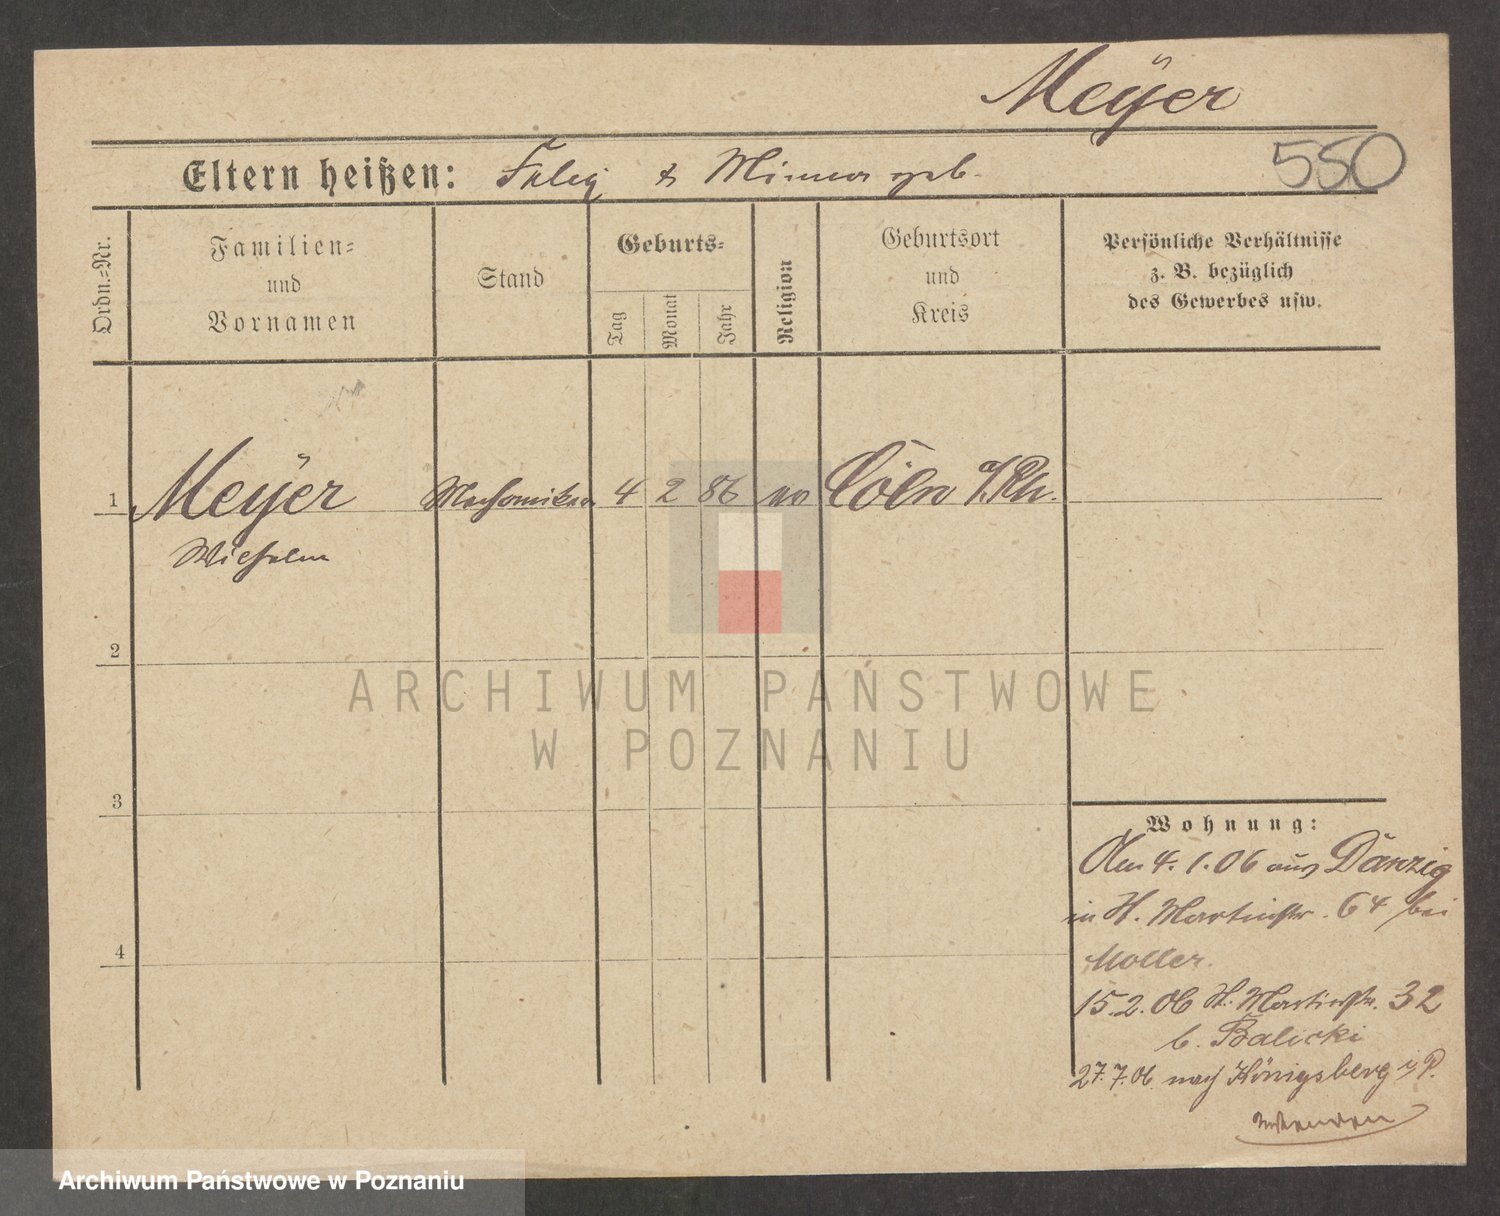 Meÿer
Eltern heißen: Felix & Minna geb.
550
Ordn.-Nr.
Familien-
und
Vornamen
Stand
Geburts-
Tag
Monat
Jahr
Religion
Geburtsort
und
Kreis
Persönliche Verhältnisse
z. B. bezüglich
des Gewerbes usw.
1 Meÿer Mechaniker 4 2 86 Cöln a/Rh.
Wilhelm
2
3
4
Wohnung:
Am 4.1.06 aus Danzig
in St. Martinstr. 64 bei
Moller.
15.2.06 St. Martinstr. 32
b. Balicki
27.7.06. nach Königsberg i/P.
ARCHIWUM PAŃSTWOWE
W POZNANIU
Archiwum Państwowe w Poznaniu